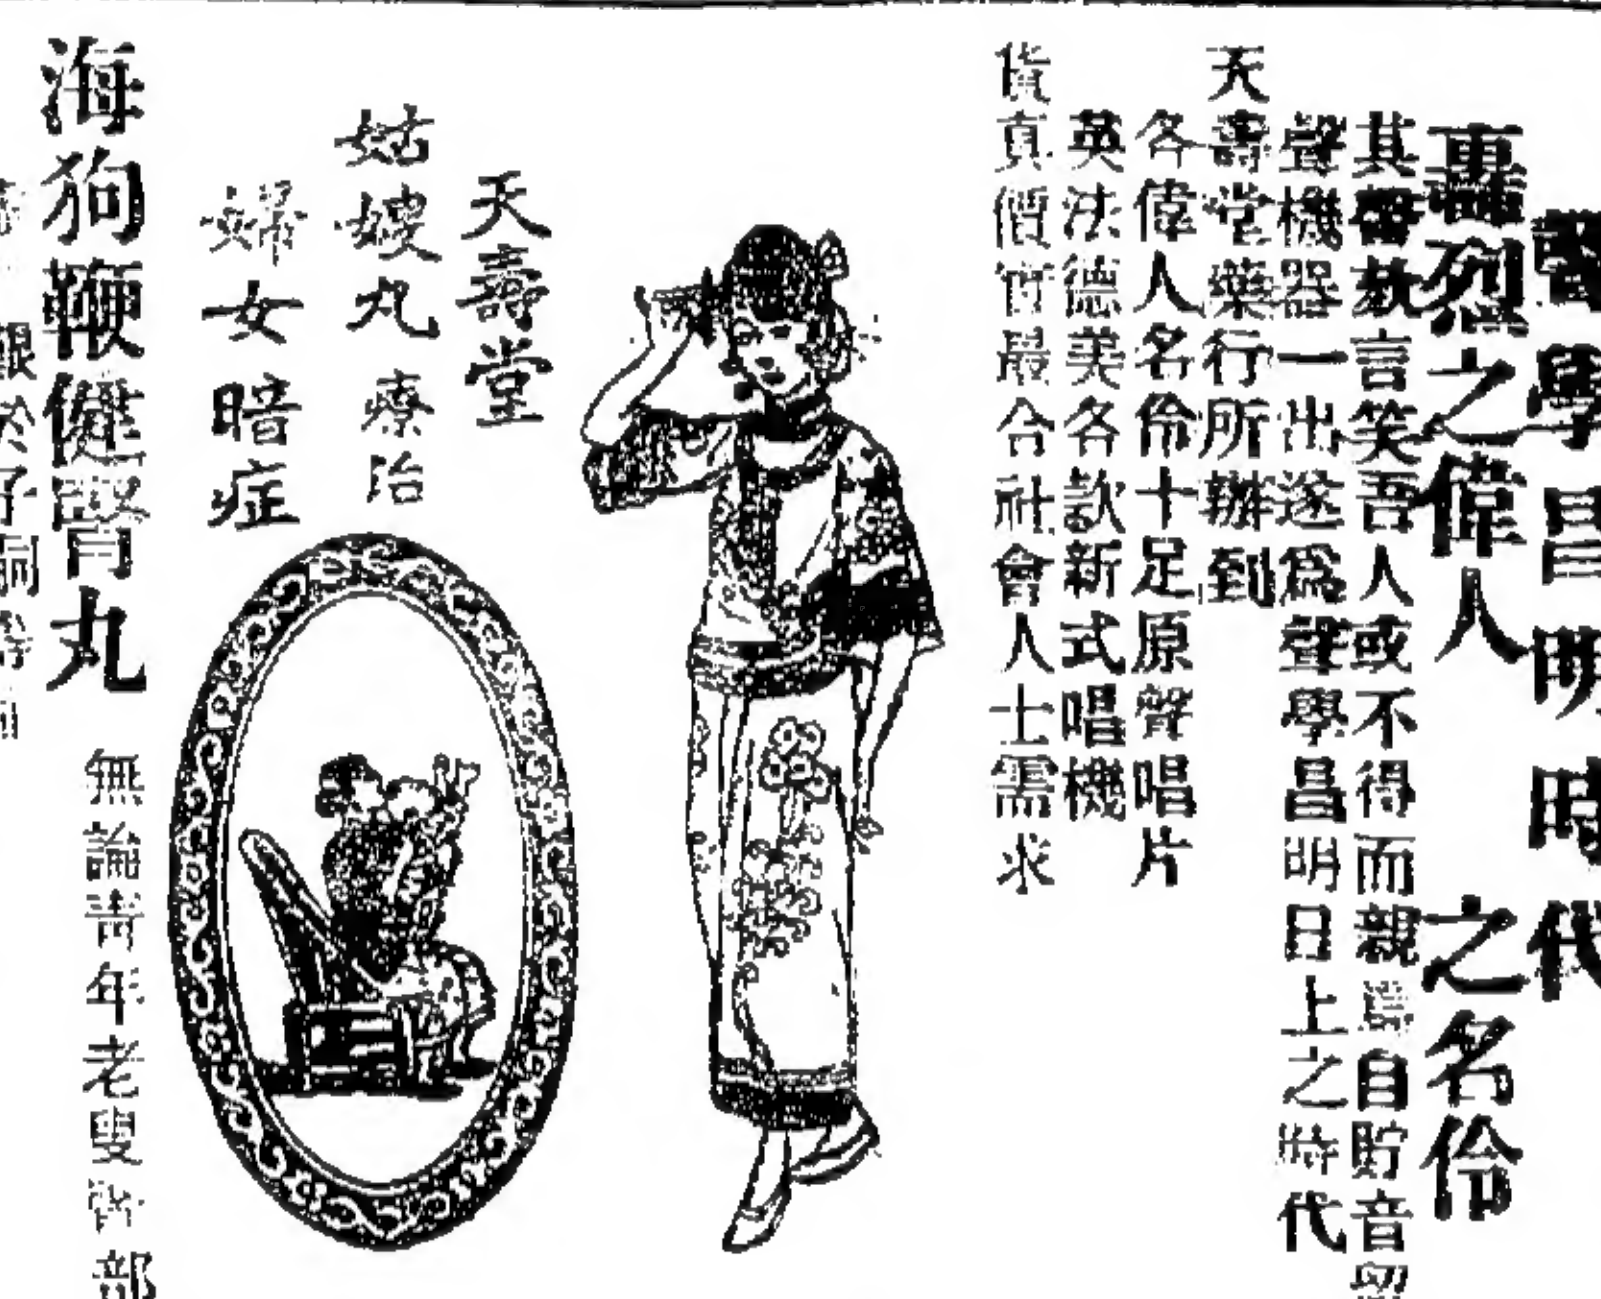 聲學昌明時代
轟烈之偉人 之名伶
其謦欬言笑吾人或不得而親 自貯音留
聲機器一出遂爲聲學昌明日上之時代
天壽堂藥行所辦到
各偉人名伶十足原聲唱片
英法德美各款新式唱機
貨真價實最合社會人士需求
天壽堂
姑嫂丸療治
婦女暗症
海狗鞭健腎丸
無論青年老叟 部
艱於子嗣